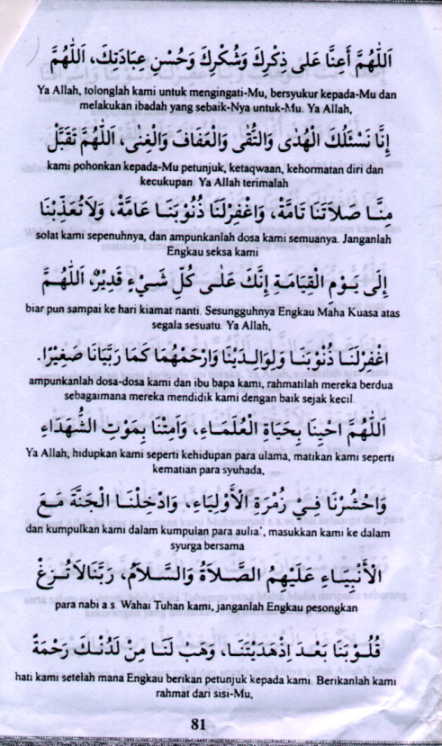 اَللّٰهُمَّ أَعِنَّا عَلى ذِكْرِكَ وَشُكْرِكَ وَحُسْنِ عِبَادَتِكَ، اَللّٰهُمَّ
Ya Allah, tolonglah kami untuk mengingati-Mu, bersyukur kepada-Mu dan
melakukan ibadah yang sebaik-Nya untuk-Mu. Ya Allah,
إِنَّا نَسْئَلُكَ الْهُدٰى وَالتُّقٰى وَالْعَفَافَ وَالْغِنٰى، اَللّٰهُمَّ تَقَبَّلْ
kami pohonkan kepada-Mu petunjuk, ketaqwaan, kehormatan diri dan
kecukupan. Ya Allah terimalah
مِنَّا صَلاَتَنَا تَامَّةً، وَاغْفِرْلَنَا ذُنُوْبَنَا عَامَّةً، وَلاَتُعَذِّبْنَا
solat kami sepenuhnya, dan ampunkanlah dosa kami semuanya. Janganlah
Engkau seksa kami
إِلَى يَوْمِ الْقِيَامَةِ إِنَّكَ عَلٰى كُلِّ شَيْءٍ قَدِيْرٌ، اَللّٰهُمَّ
biar pun sampai ke hari kiamat nanti. Sesungguhnya Engkau Maha Kuasa atas
segala sesuatu. Ya Allah,
اغْفِرْلَنَا ذُنُوْبَنَا وَلِوَالِدِيْنَا وَارْحَمْهُمَا كَمَا رَبَّيَانَا صَغِيْرًا.
ampunkanlah dosa-dosa kami dan ibu bapa kami, rahmatilah mereka berdua
sebagaimana mereka mendidik kami dengan baik sejak kecil.
اَللّٰهُمَّ احْيِنَا بِحَيَاةِ الْعُلَمَاءِ، وَاَمِتْنَا بِمَوْتِ الشُّهَدَاءِ
Ya Allah, hidupkan kami seperti kehidupan para ulama, matikan kami seperti
kematian para syuhada,
وَاحْشُرْنَا فِيْ زُمْرَةِ الْأَوْلِيَاءِ، وَادْخِلْنَا الْجَنَّةَ مَعَ
dan kumpulkan kami dalam kumpulan para aulia', masukkan kami ke dalam
syurga bersama
الْأَنْبِيَاءِ عَلَيْهِمُ الصَّلاَةُ وَالسَّلاَمُ، رَبَّنَالاَتُزِغْ
para nabi a.s. Wahai Tuhan kami, janganlah Engkau pesongkan
قُلُوْبَنَا بَعْدَ اِذْهَدَيْتَنَا، وَهَبْ لَنَا مِنْ لَدُنْكَ رَحْمَةً
hati kami setelah mana Engkau berikan petunjuk kepada kami. Berikanlah kami
rahmat dari sisi-Mu,
81